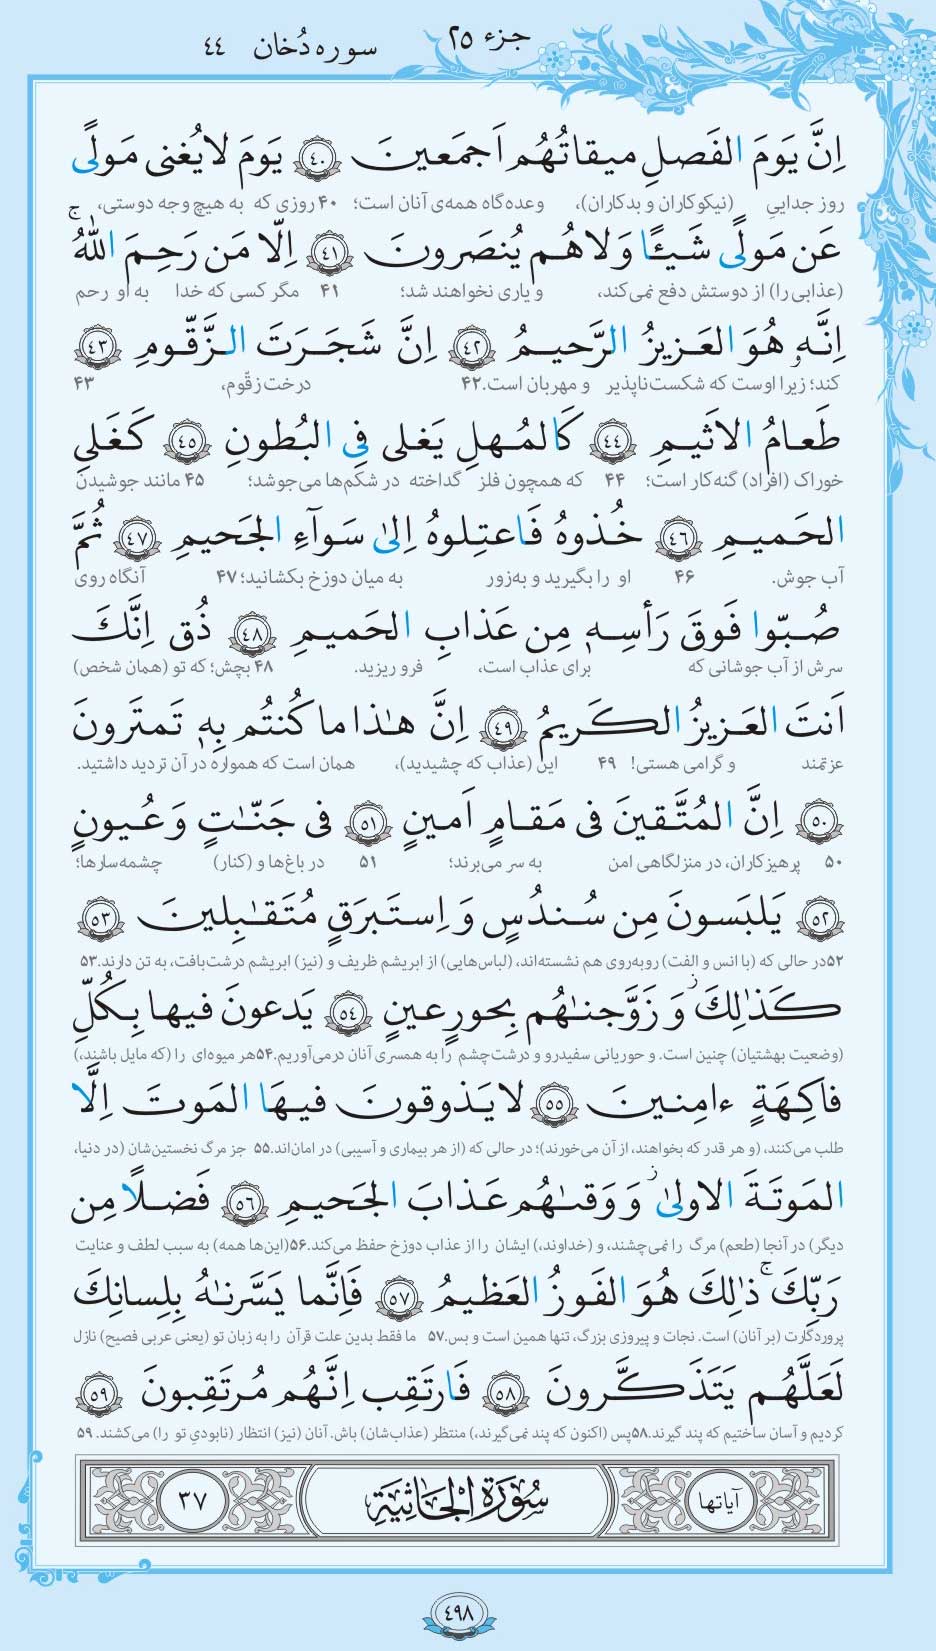 جزء ۲۵
سوره دُخان ۴۴
اِنَّ يَوْمَ الفَصلِ ميقاتُهُم اَجمَعينَ ﴿٤٠﴾ يَومَ لا يُغنى مَولًى
روز جدایی (نیکوکاران و بدکاران)، وعده‌گاه همه‌ی آنان است؛ ۴۰ روزی که به هیچ وجه دوستی،
عَن مَولًى شَيـًٔا وَلا هُم يُنصَرونَ ﴿٤١﴾ اِلّا مَن رَحِمَ اللّٰهُ ۚ
(عذابی را) از دوستش دفع نمی‌کند، و یاری نخواهند شد؛ ۴۱ مگر کسی که خدا به او رحم
اِنَّهٗ هُوَ العَزيزُ الرَّحيمُ ﴿٤٢﴾ اِنَّ شَجَرَتَ الزَّقّومِ ﴿٤٣﴾
کند؛ زیرا اوست که شکست‌ناپذیر و مهربان است. ۴۲ درخت زقّوم، ۴۳
طَعامُ الاَثيمِ ﴿٤٤﴾ كَالمُهلِ يَغلى فِى البُطونِ ﴿٤٥﴾ كَغَلىِ
خوراک (افراد) گنه‌کار است؛ ۴۴ که همچون فلز گداخته در شکم‌ها می‌جوشد؛ ۴۵ مانند جوشیدن
الحَميمِ ﴿٤٦﴾ خُذوهُ فَاعتِلوهُ اِلىٰ سَوآءِ الجَحيمِ ﴿٤٧﴾ ثُمَّ
آب جوش. ۴۶ او را بگیرید و به‌زور به میان دوزخ بکشانید؛ ۴۷ آنگاه روی
صُبّوا فَوقَ رَأسِهٖ مِن عَذابِ الحَميمِ ﴿٤٨﴾ ذُق اِنَّكَ
سرش از آب جوشانی که برای عذاب است، فرو ریزید. ۴۸ بچش؛ که تو (همان شخص)
اَنتَ العَزيزُ الكَريمُ ﴿٤٩﴾ اِنَّ هٰذا ما كُنتُم بِهٖ تَمتَرونَ
عزتمند و گرامی هستی! ۴۹ این (عذاب که چشیدید)، همان است که همواره در آن تردید داشتید.
﴿٥٠﴾ اِنَّ المُتَّقينَ فى مَقامٍ اَمينٍ ﴿٥١﴾ فى جَنّٰتٍ وَعُيونٍ
۵۰ پرهیزکاران، در منزلگاهی امن به سر می‌برند؛ ۵۱ در باغ‌ها و (کنار) چشمه‌سارها؛
﴿٥٢﴾ يَلبَسونَ مِن سُندُسٍ وَاِستَبرَقٍ مُتَقٰبِلينَ ﴿٥٣﴾
۵۲ در حالی که (با انس و الفت) روبه‌روی هم نشسته‌اند، (لباس‌هایی) از ابریشم ظریف و (نیز) ابریشم درشت‌بافت، به تن دارند. ۵۳
كَذٰلِكَ ۫ وَزَوَّجنٰهُم بِحورٍ عينٍ ﴿٥٤﴾ يَدعونَ فيها بِكُلِّ
(وضعیت بهشتیان) چنین است. و حوریانی سفیدرو و درشت‌چشم را به همسری آنان درمی‌آوریم. ۵۴ هر میوه‌ای را (که مایل باشند،)
فاكِهَةٍ ءامِنينَ ﴿٥٥﴾ لا يَذوقونَ فيهَا المَوتَ اِلَّا
طلب می‌کنند، (و هر قدر که بخواهند، از آن می‌خورند)؛ در حالی که (از هر بیماری و آسیبی) در امان‌اند. ۵۵ جز مرگ نخستین‌شان (در دنیا،
المَوتَةَ الاولىٰ ۫ وَوَقىٰهُم عَذابَ الجَحيمِ ﴿٥٦﴾ فَضلًا مِن
دیگر) در آنجا (طعم) مرگ را نمی‌چشند، و (خداوند،) ایشان را از عذاب دوزخ حفظ می‌کند. ۵۶ (این‌ها همه) به سبب لطف و عنایت
رَبِّكَ ۚ ذٰلِكَ هُوَ الفَوزُ العَظيمُ ﴿٥٧﴾ فَاِنَّما يَسَّرنٰهُ بِلِسانِكَ
پروردگارت (بر آنان) است. نجات و پیروزی بزرگ، تنها همین است و بس. ۵۷ ما فقط بدین علت قرآن را به زبان تو (یعنی عربی فصیح) نازل
لَعَلَّهُم يَتَذَكَّرونَ ﴿٥٨﴾ فَارتَقِب اِنَّهُم مُرتَقِبونَ ﴿٥٩﴾
کردیم و آسان ساختیم که پند گیرند. ۵۸ پس (اکنون که پند نمی‌گیرند،) منتظر (عذاب‌شان) باش. آنان (نیز) انتظار (نابودیِ تو را) می‌کشند. ۵۹
آیاتها سُورَةُ الجَاثِيَةِ ۳۷
٤٩٨